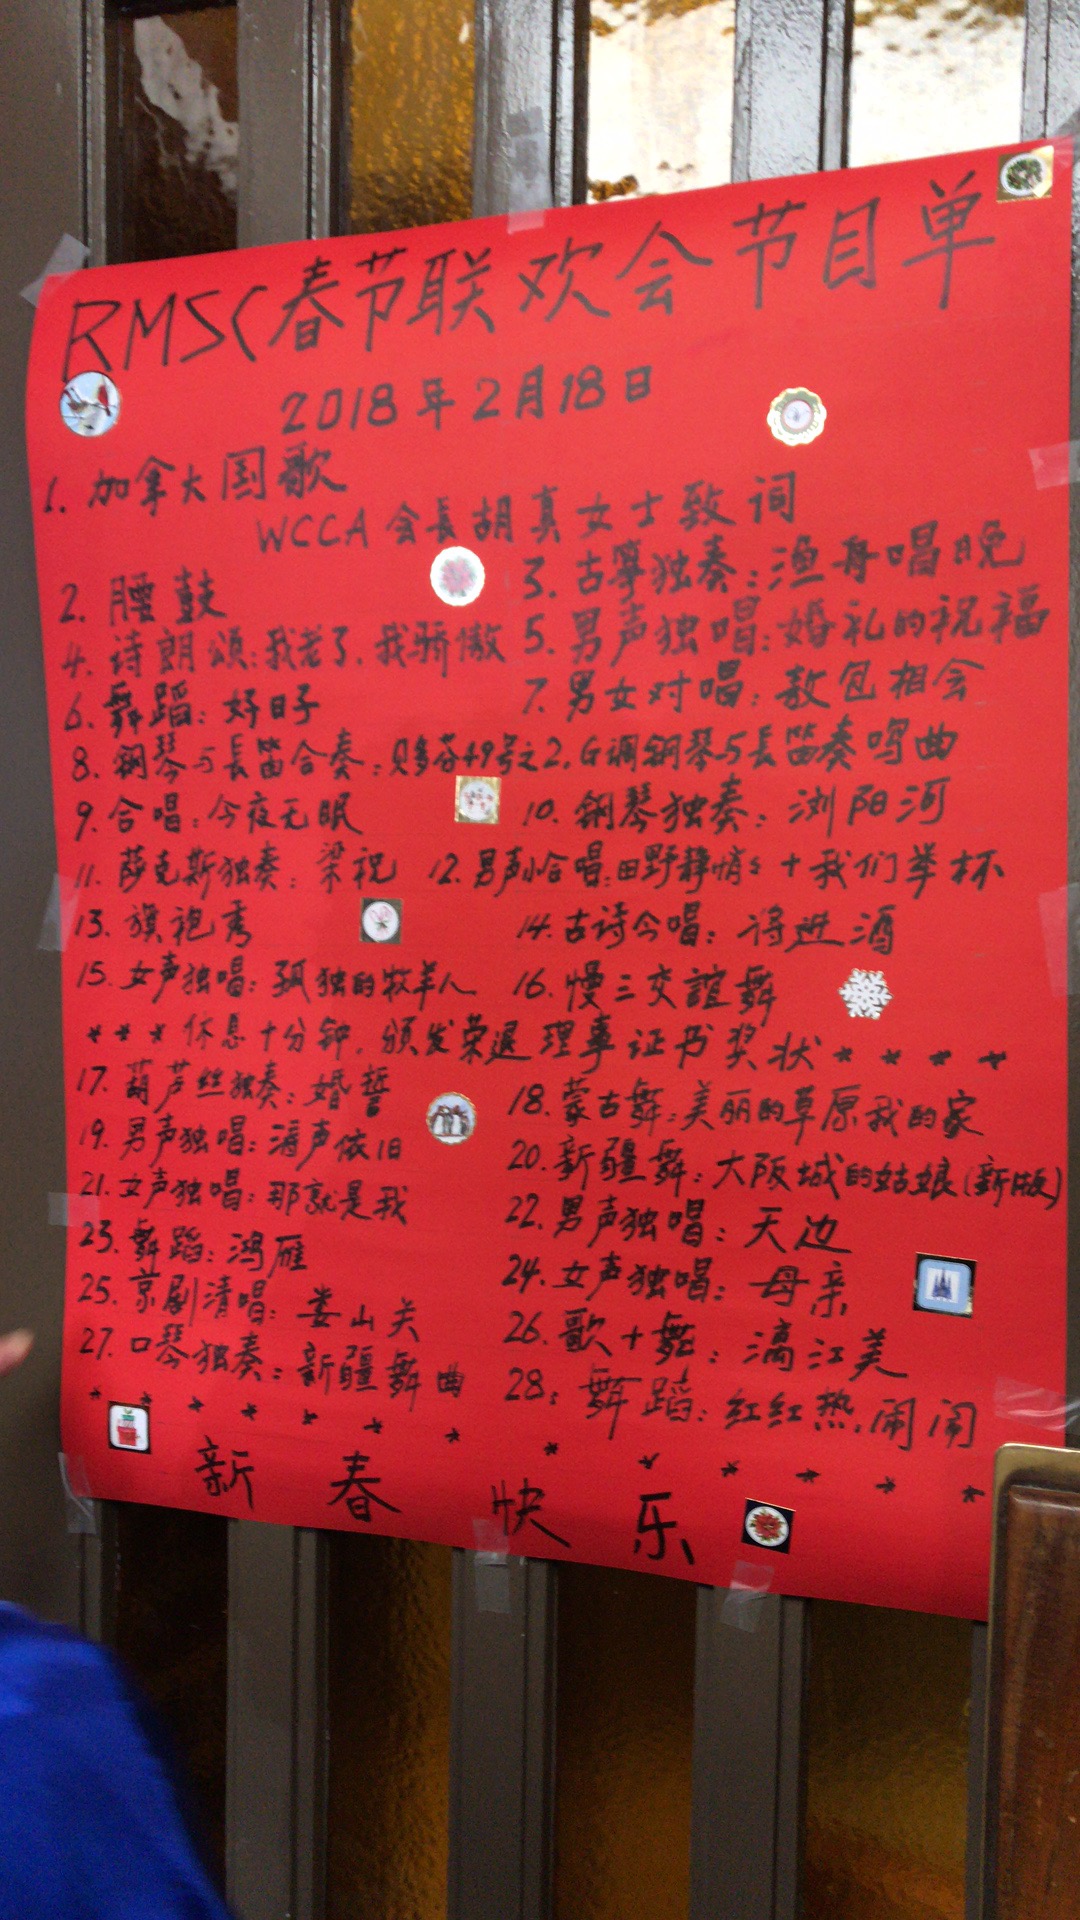 RMSC春节联欢会节目单
2018年2月18日
1. 加拿大国歌
WCCA会長胡真女士致词
2. 腰鼓
3. 古筝独奏:渔舟唱晚
4. 诗朗颂:我老了,我骄傲
5. 男声独唱:婚礼的祝福
6. 舞蹈:好日子
7. 男女对唱:敖包相会
8. 鋼琴与長笛合奏:贝多芬49号之2, G调鋼琴与長笛奏鸣曲
9. 合唱:今夜无眠
10. 鋼琴独奏:浏阳河
11. 萨克斯独奏:梁祝
12. 男声小合唱:田野静悄々+我们举杯
13. 旗袍秀
14. 古诗今唱:将进酒
15. 女声独唱:孤独的牧羊人
16. 慢三交誼舞
***休息十分钟,颁发荣退理事证书奖状****
17. 葫芦丝独奏:婚誓
18. 蒙古舞:美丽的草原我的家
19. 男声独唱:涛声依旧
20. 新疆舞:大阪城的姑娘(新版)
21. 女声独唱:那就是我
22. 男声独唱:天边
23. 舞蹈:鸿雁
24. 女声独唱:母亲
25. 京剧清唱:娄山关
26. 歌+舞:漓江美
27. 口琴独奏:新疆舞曲
28: 舞蹈:红红热,闹闹
* * * * * * * * * * * * *
新春快乐